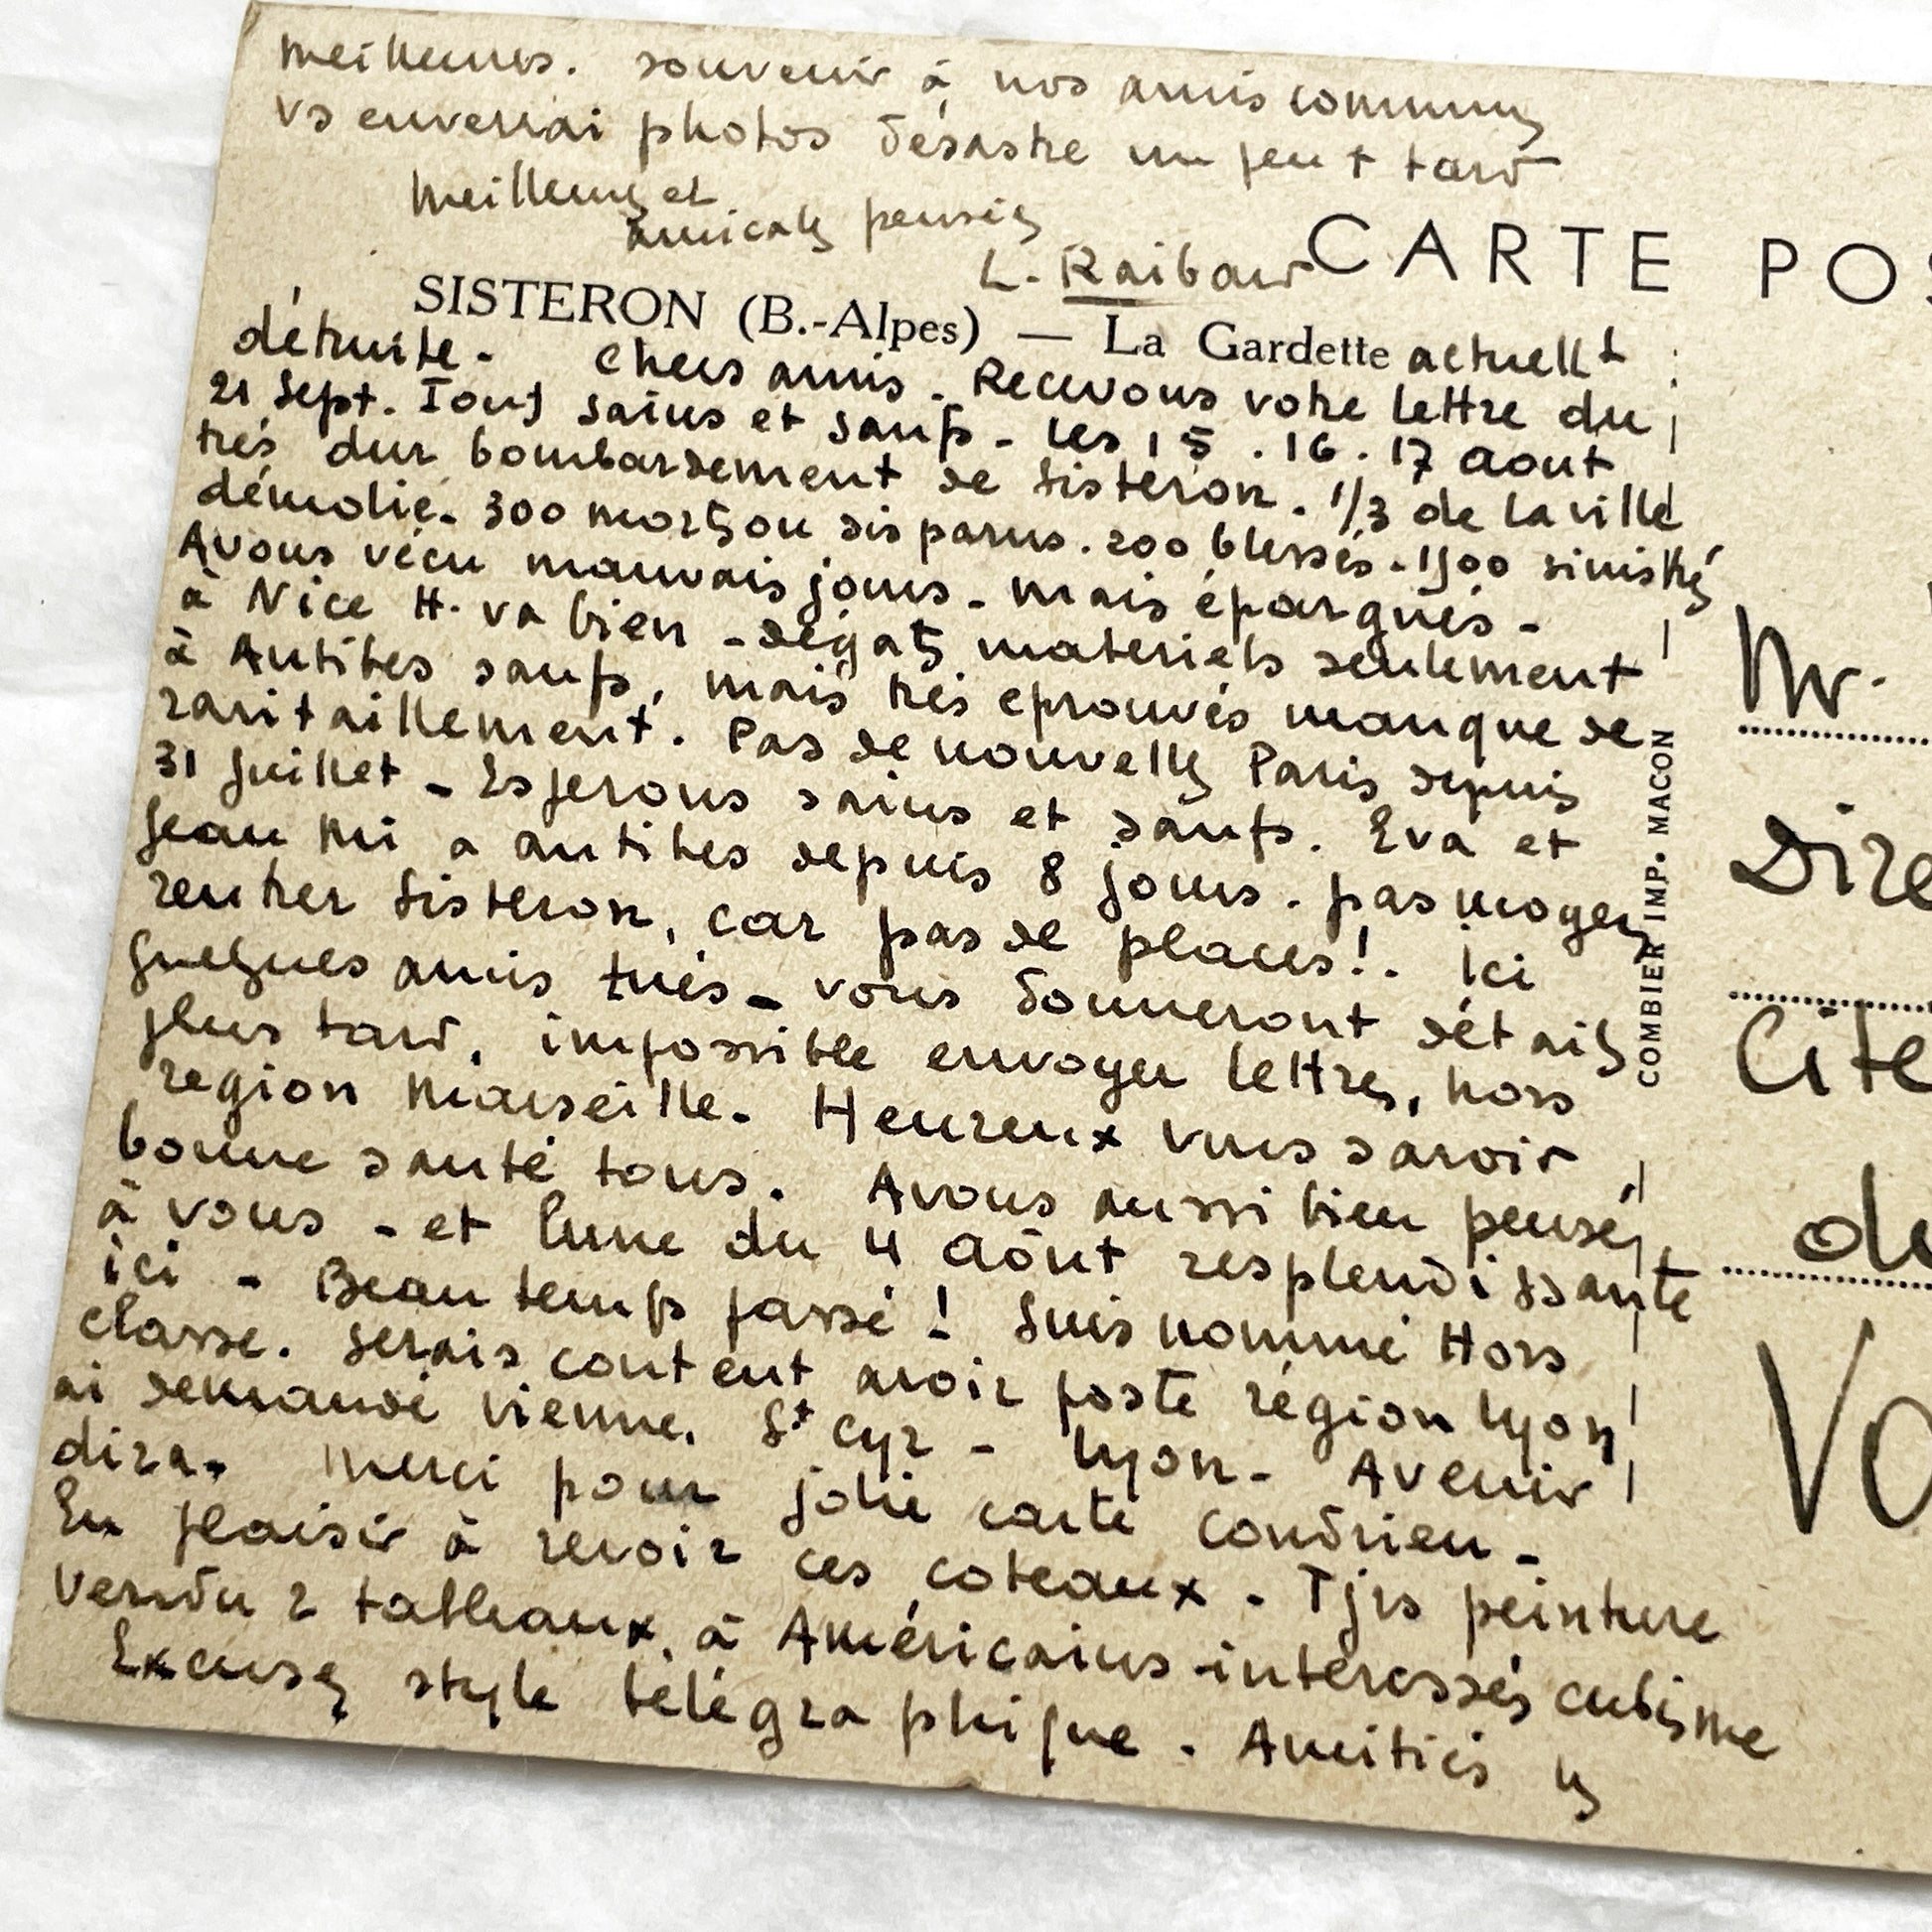 meilleures. souvenir à nos amis communs
vs enverrai photos désastre un peu + tard
Meilleures et
amicales pensées
L. Raibaud
CARTE POS
SISTERON (B.-Alpes) — La Gardette actuellt
détruite. Chers amis. Recevons votre lettre du
21 Sept. Tous sains et saufs - Les 15. 16. 17 aout
très dur bombardement de Sisteron. 1/3 de la ville
démolie. 300 morts ou disparus. 200 blessés. 1500 sinistrés
Avons vécu mauvais jours. mais épargnés -
à Nice H. va bien - dégats materiels seulement
à Antibes saufs, mais très eprouvés manque de
ravitaillement. Pas de nouvelles Paris depuis
31 Juillet - Esperons sains et saufs. Eva et
Jean Mi a antibes depuis 8 jours. pas moyen
rentrer Sisteron, car pas de places!. Ici
quelques amis tués - vous donneront détails
plus tard, impossible envoyer lettres, hors
region Marseille. Heureux vous savoir
bonne santé tous. Avons aussi bien pensé
à vous - et lune du 4 Août resplendissante
ici - Beau temps passé ! Suis nommé Hors
classe. Serais content avoir poste région Lyon
ai demandé Vienne. St Cyr - Lyon - Avenir
dira. Merci pour jolie carte Condrieu -
En plaisir à revoir ces coteaux. Tjrs peinture
Vendu 2 tableaux à Américains intéressés cubisme
Excusez style télégraphique. Amitiés
COMBIER IMP. MACON
Mr.
Dire
Cité
de
Vo